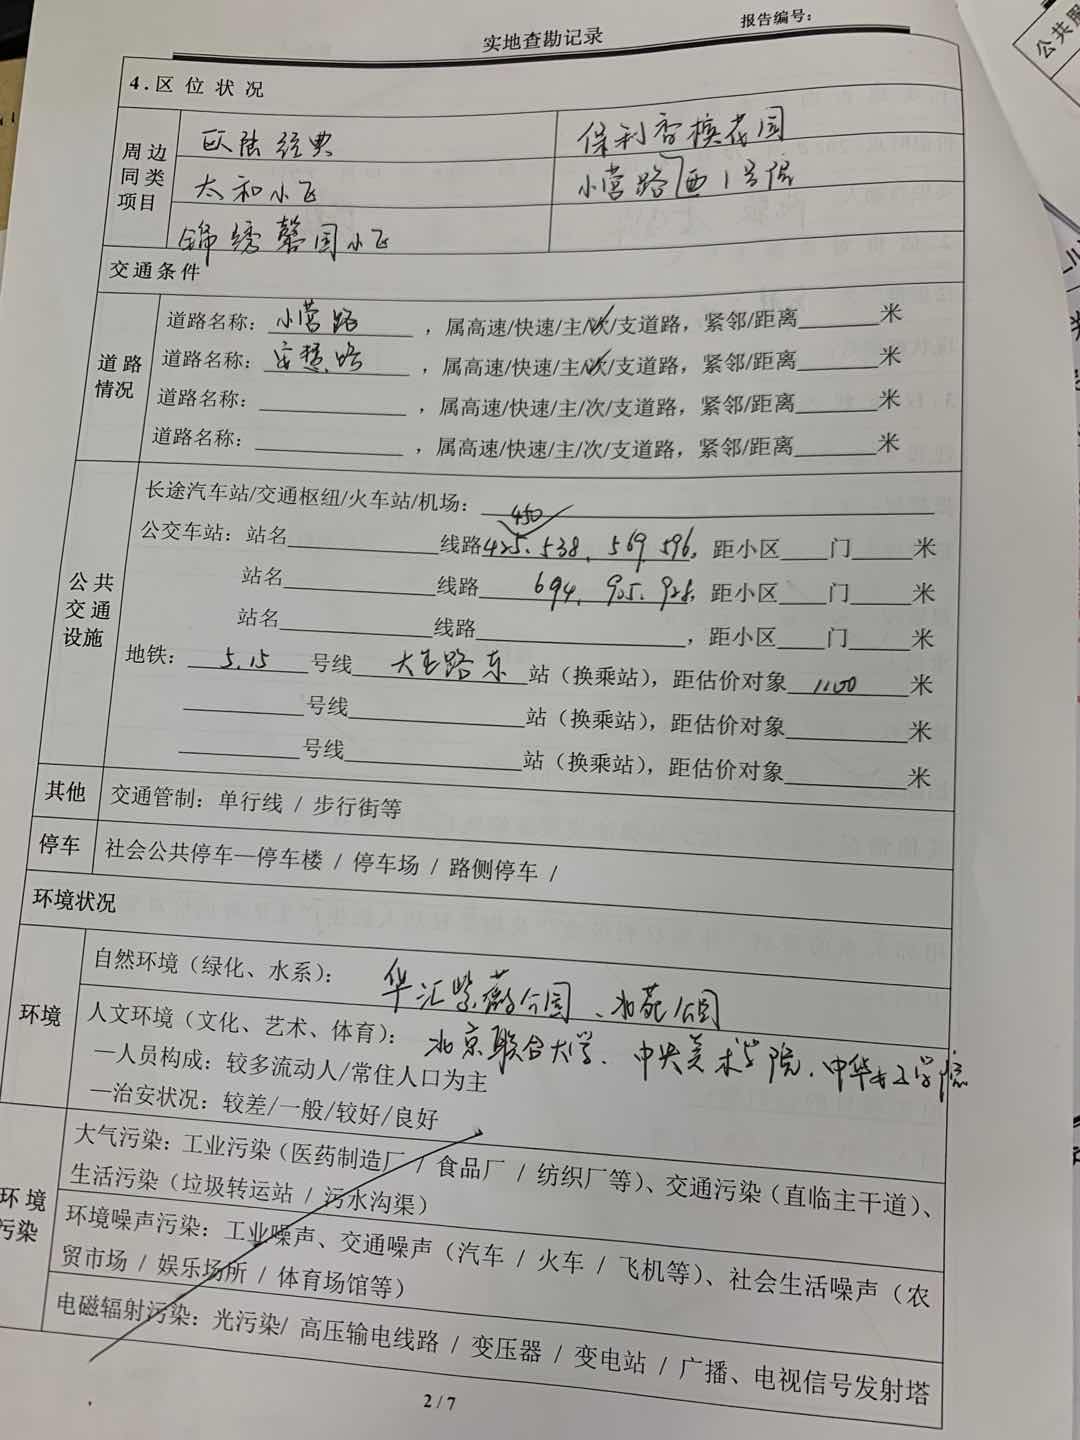 报告编号：
实地查勘记录
4.区位状况
周边同类项目
欧陆经典 保利香槟花园
太和小区 小营路西1号院
锦绣馨园小区
交通条件
道路情况
道路名称：小营路，属高速/快速/主/次/支道路，紧邻/距离______米
道路名称：安慧路，属高速/快速/主/次/支道路，紧邻/距离______米
道路名称：______，属高速/快速/主/次/支道路，紧邻/距离______米
道路名称：______，属高速/快速/主/次/支道路，紧邻/距离______米
公共交通设施
长途汽车站/交通枢纽/火车站/机场：
450
公交车站：站名______线路425、538、569、596，距小区____门____米
站名______线路694、905、928，距小区____门____米
站名______线路______，距小区____门____米
地铁：5、15号线大屯路东站（换乘站），距估价对象1100米
______号线______站（换乘站），距估价对象______米
______号线______站（换乘站），距估价对象______米
其他 交通管制：单行线 / 步行街等
停车 社会公共停车—停车楼 / 停车场 / 路侧停车 /
环境状况
环境
自然环境（绿化、水系）：华汇紫薇公园、北苑公园
人文环境（文化、艺术、体育）：北京联合大学、中央美术学院、中华女子学院
—人员构成：较多流动人/常住人口为主
—治安状况：较差/一般/较好/良好
环境污染
大气污染：工业污染（医药制造厂 / 食品厂 / 纺织厂等）、交通污染（直临主干道）、
生活污染（垃圾转运站 / 污水沟渠）
环境噪声污染：工业噪声、交通噪声（汽车 / 火车 / 飞机等）、社会生活噪声（农
贸市场 / 娱乐场所 / 体育场馆等）
电磁辐射污染：光污染/ 高压输电线路 / 变压器 / 变电站 / 广播、电视信号发射塔
2/7
公共服